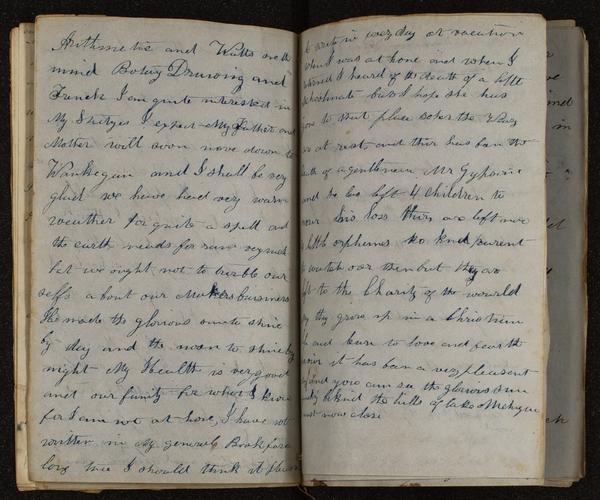 Arithmetic and Watts on the
mind Botany Drawing and
French I am quite interested in
My Studyes I expect My Father and
Mother will soon move down to
Waukegan and I shall be very
glad we have had very warm
weather for quite a spell and
the earth needs for rain very much
but we ought not to trubble our
selfs about our Makers buisness
He made the glorious sun to shine
by day and the moon to shine by
night My Health is very good
and our family for what I know
for I am not at home, I have not
written in My Book for a
long time I should think it
to write in every day at vacation
when I was at home and when I
I heard of the death of a little
schoolmate but I hope she has
gone to that place where the
are at rest and their has ban the
death of a gentleman Mr
and he has left 4 Children to
his loss they are left now
little orphens no kind parent
to watch over them but they are
left to the Charity of the wourld
they grow up in a Christian
and learn to love and fear the
it has ban a very pleasent
and you can see the glorious sun
behind the hills of lake Michigan
must now close